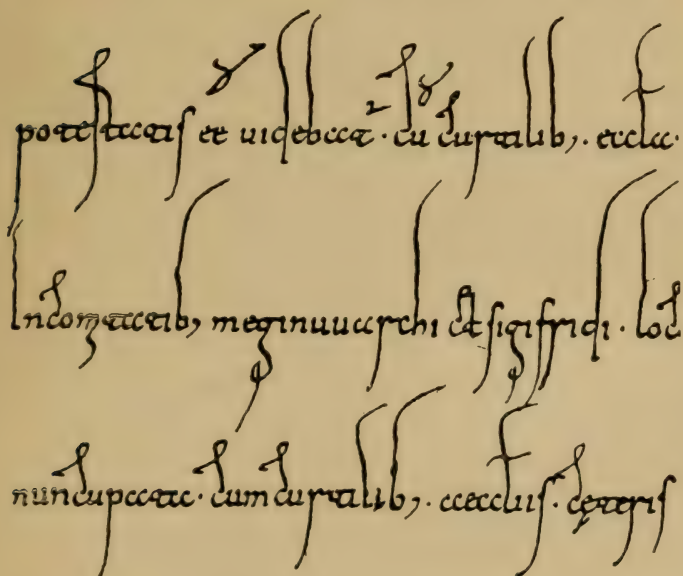 potestatis et uidebat · cū curtilib; · eccla ·
In comitatib; meginuuarchi et sigifridi · loc
nuncupata · cum curtilib; · aeccliis · cęteris